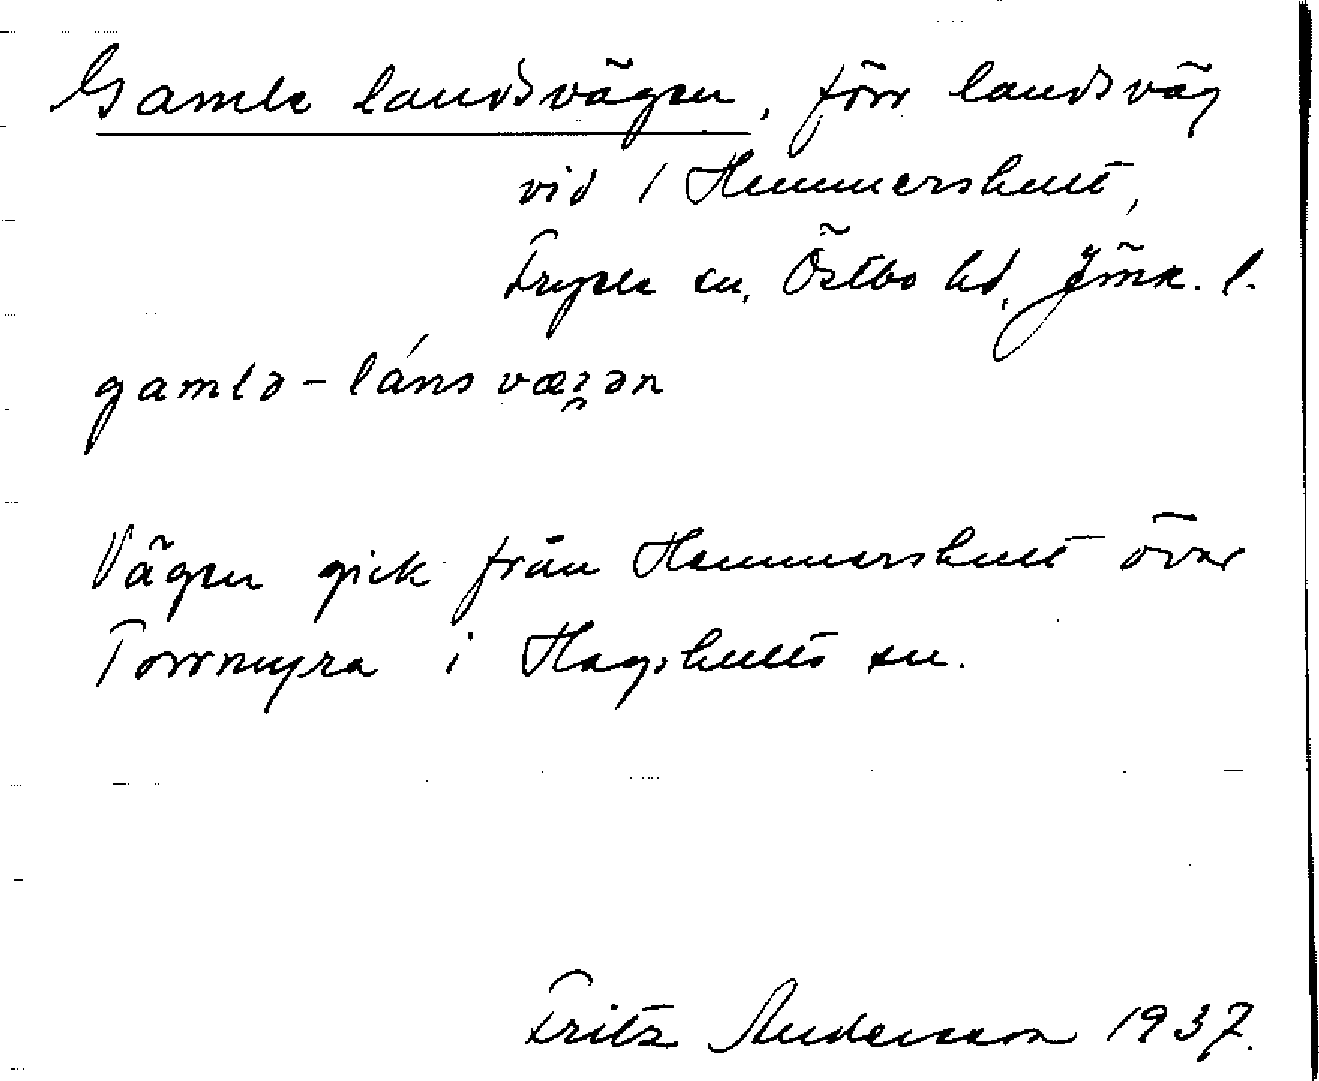 Gamla landsvägen, förr landsväg
vid / Hemmershult,
Tryple sn, Östbo hd, Jönk. l.
gamlə-lánsvæʒən
Vägen gick från Hemmershult över
Torrmyra i Hagshults sn.
Fritz Andersson 1937.